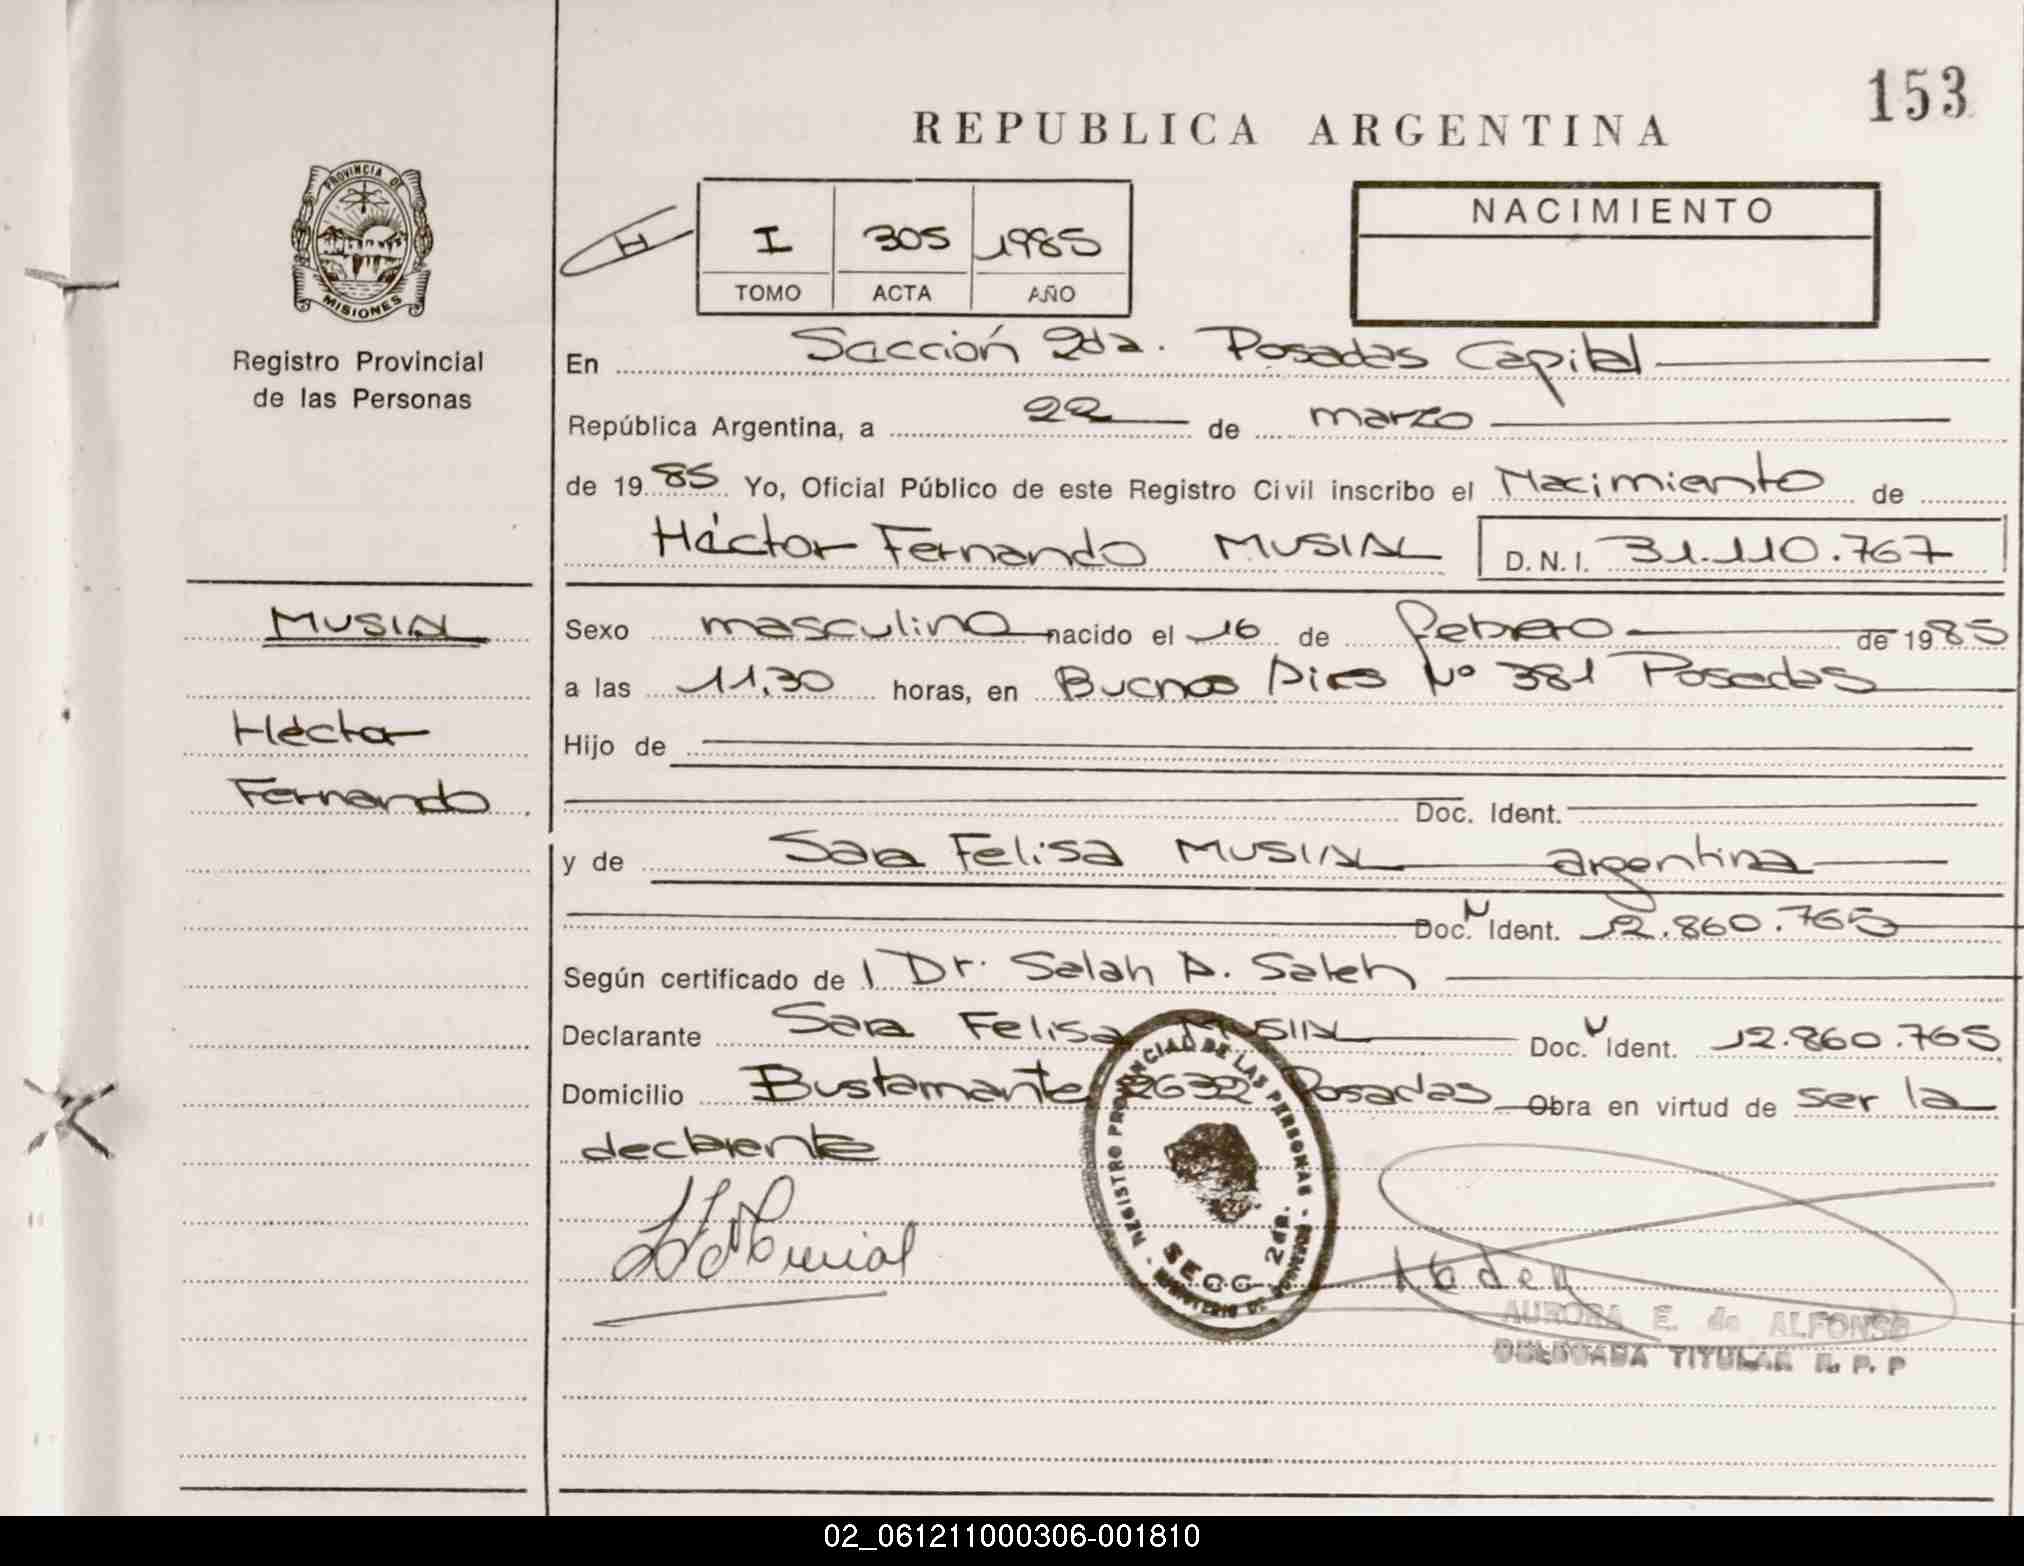 153
REPUBLICA ARGENTINA
PROVINCIA DE
MISIONES
Registro Provincial
de las Personas
H
I 305 1985
TOMO ACTA AÑO
NACIMIENTO
En Sección 2da. Posadas Capital
República Argentina, a 22 de marzo
de 1985 Yo, Oficial Público de este Registro Civil inscribo el Nacimiento de
Héctor Fernando MUSIAL D.N.I. 31.110.767
MUSIAL
Héctor
Fernando
Sexo masculino nacido el 16 de febrero de 1985
a las 11,30 horas, en Buenos Aires Nº 381 Posadas
Hijo de
Doc. Ident.
y de Sara Felisa MUSIAL argentina
Doc. N Ident. 12.860.765
Según certificado de Dr. Salah A. Saleh
Declarante Sara Felisa MUSIAL Doc. Ident. 12.860.765
Domicilio Bustamante 2632 Posadas Obra en virtud de ser la
declarante
REGISTRO PROVINCIAL DE LAS PERSONAS
SECC 2da.
MINISTERIO DE
AURORA E. de ALFONSO
DELEGADA TITULAR R. P. P
02_061211000306-001810